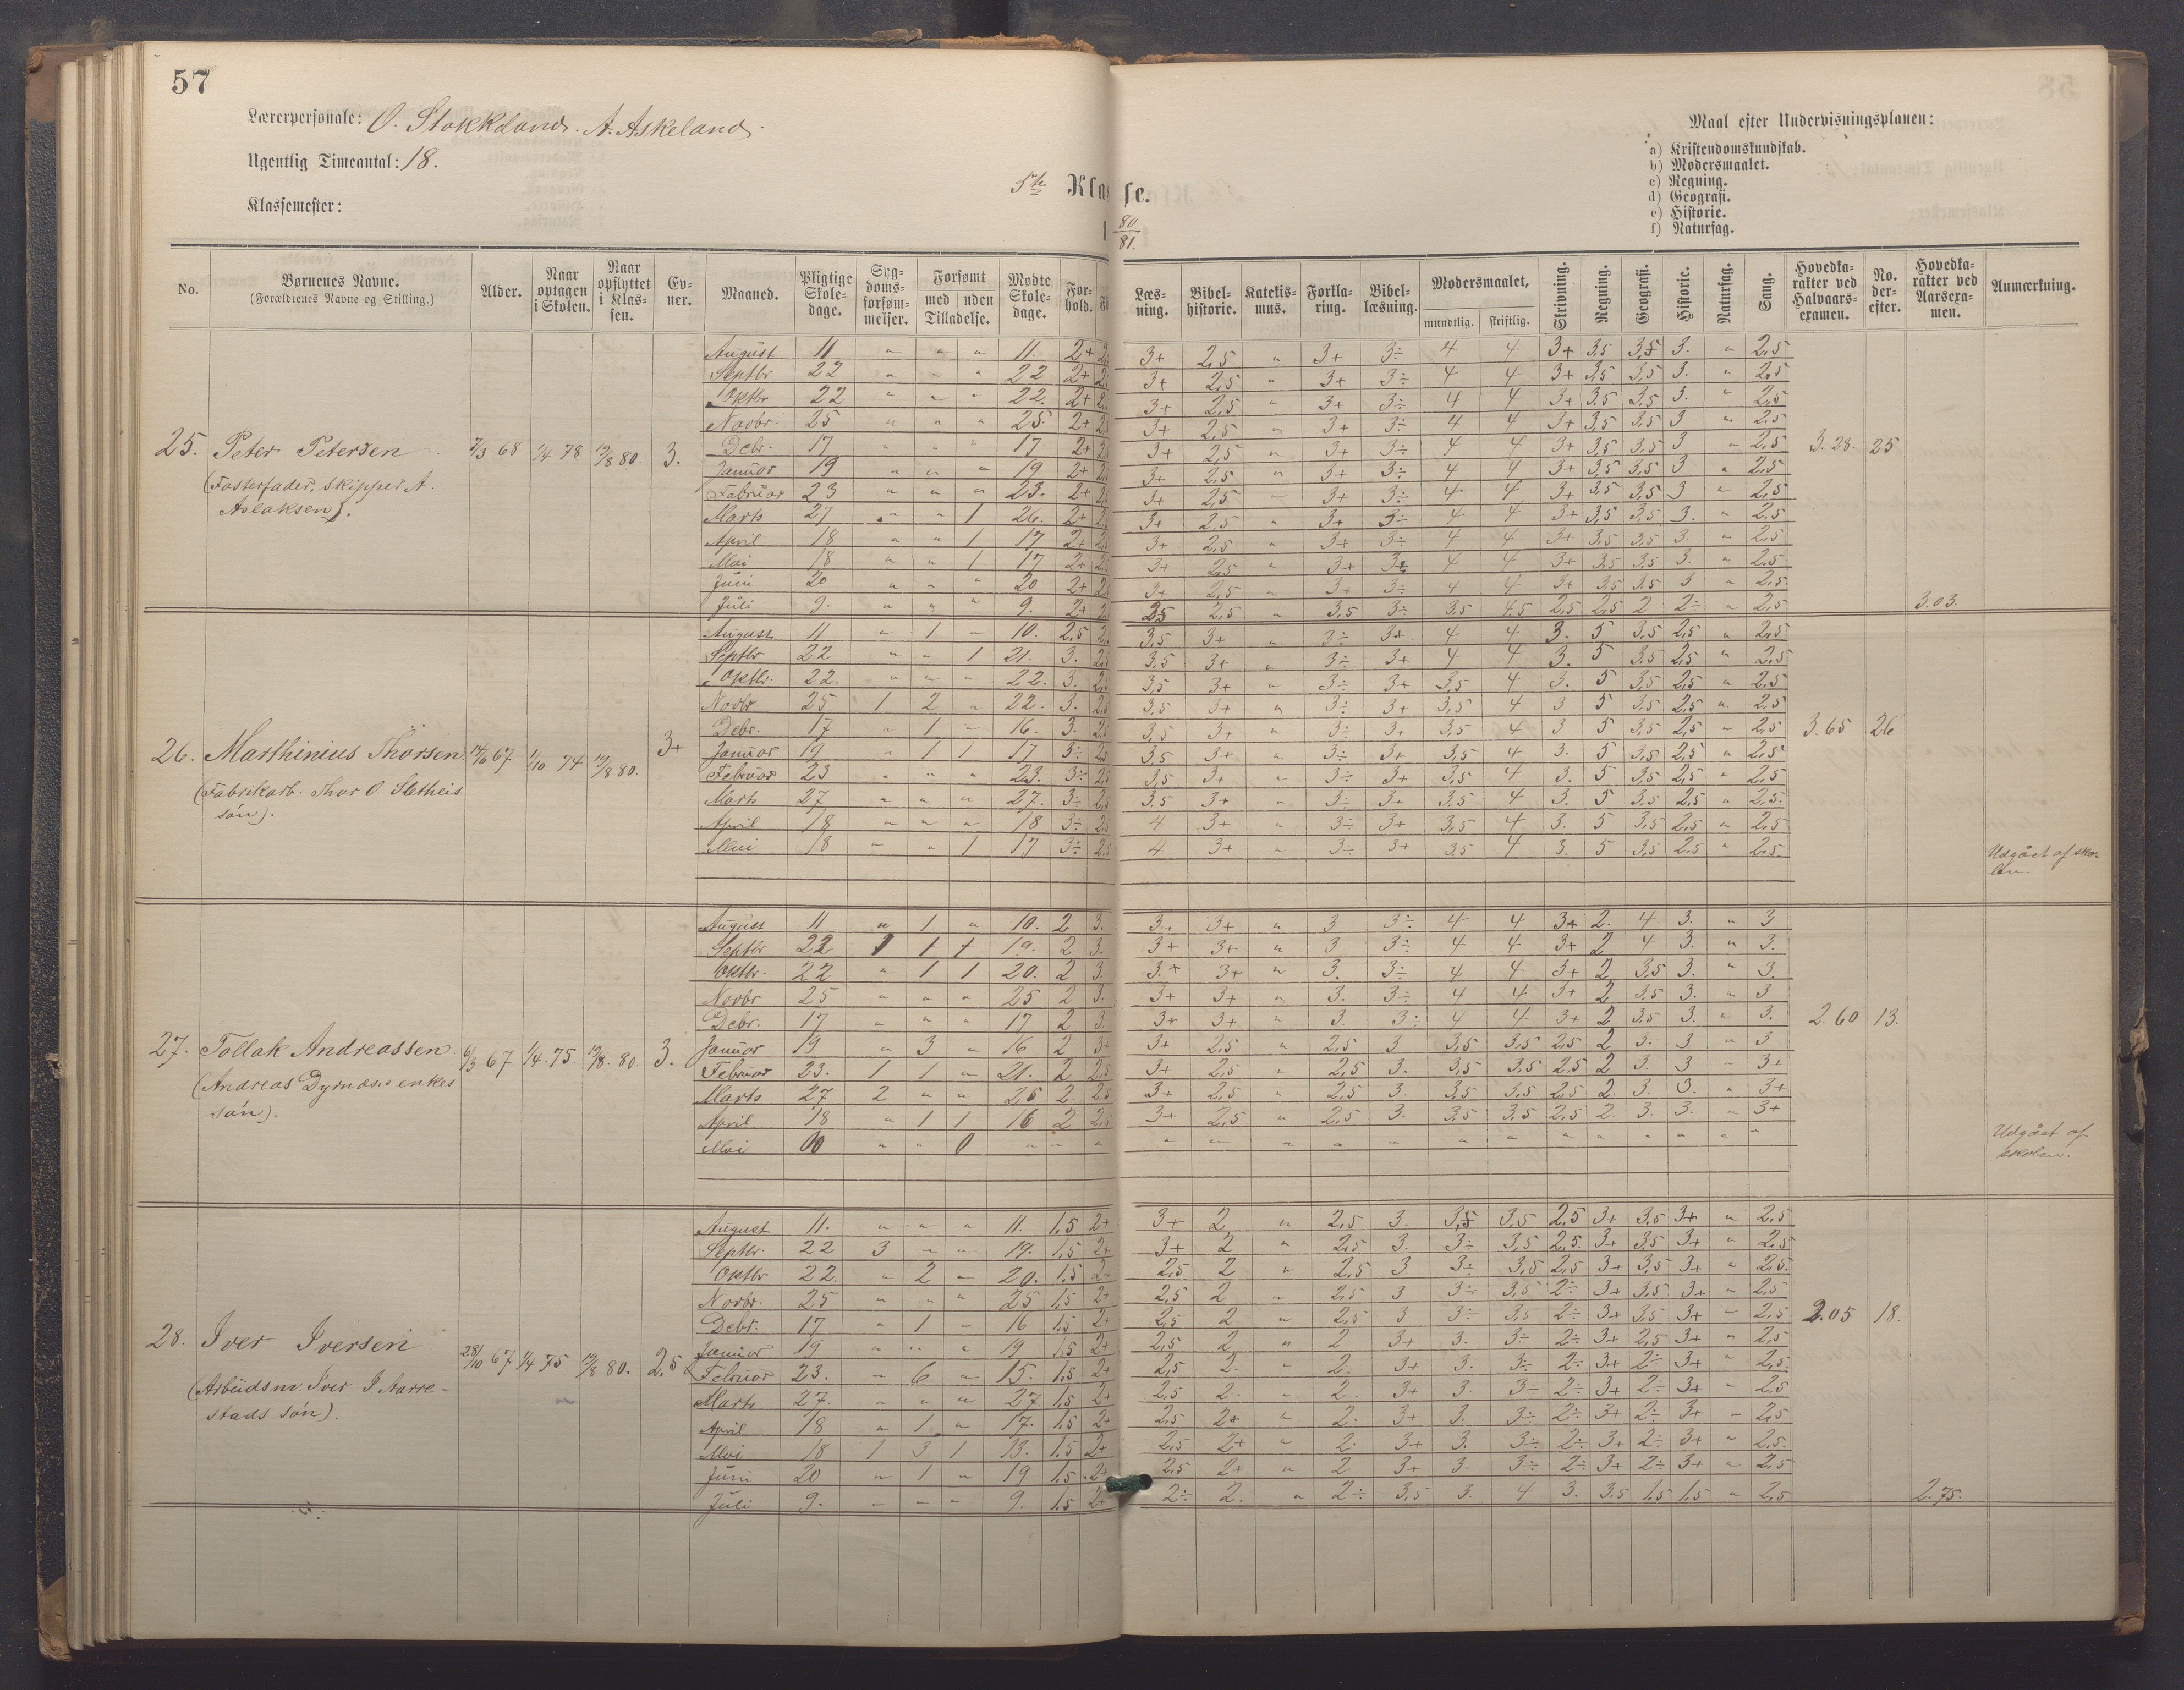 57
Lærerpersonale: O. Stokkeland. A. Askeland.
Ugentlig Timeantal: 18.
Klassemester:
5te Klasse.
80/81.
Maal efter Undervisningsplanen:
a) Kristendomskundskab.
b) Modersmaalet.
c) Regning.
d) Geografi.
e) Historie.
f) Naturfag.
No. Børnenes Navne. (Forældrenes Navne og Stilling.) Alder. Naar optagen i Skolen. Naar opflyttet i Klassen. Evner. Maaned. Pligtige Skoledage. Sygdomsforsømmelser. Forsømt med uden Tilladelse. Mødte Skoledage. Forhold. Læsning. Bibelhistorie. Katekismus. Forklaring. Bibellæsning. Modersmaalet, mundtlig. skriftlig. Skrivning. Regning. Geografi. Historie. Naturfag. Sang. Hovedkarakter ved Halvaarsexamen. No. derefter. Hovedkarakter ved Aarsexamen. Anmærkning.
August 11 " " " 11. 2+ 3+ 2,5 " 3+ 3÷ 4 4 3+ 3,5 3,5 3. " 2,5
Septbr 22 " " " 22 2+ 3+ 2,5 " 3+ 3÷ 4 4 3+ 3,5 3,5 3. " 2,5
Oktbr 22 " " " 22. 2+ 3+ 2,5 " 3+ 3÷ 4 4 3+ 3,5 3,5 3. " 2,5
Novbr. 25 " " " 25. 2+ 3+ 2,5 " 3+ 3÷ 4 4 3+ 3,5 3,5 3 " 2,5
25. Peter Petersen 7/3 68 1/4 78 19/8 80. 3. Debr. 17 " " " 17 2+ 3+ 2,5 " 3+ 3÷ 4 4 3+ 3,5 3,5 3 " 2,5 3.28. 25
Januar 19 " " " 19 2+ 3+ 2,5 " 3+ 3÷ 4 4 3+ 3,5 3,5 3 " 2,5
(Fosterfader, skipper A. Februar 23 " " " 23. 2+ 3+ 2,5 " 3+ 3÷ 4 4 3+ 3,5 3,5 3 " 2,5
Aslaksen). Marts 27 " " 1 26. 2+ 3+ 2,5 " 3+ 3÷ 4 4 3+ 3,5 3,5 3. " 2,5
April 18 " " 1 17 2+ 3+ 2,5 " 3+ 3÷ 4 4 3+ 3,5 3,5 3 " 2,5
Mai 18 " " 1 17 2+ 3+ 2,5 " 3+ 4 4 3+ 3,5 3,5 3. " 2,5
Juni 20 " " " 20 2+ 3+ 2,5 " 3+ 3÷ 4 4 3+ 3,5 3,5 3 " 2,5
Juli 9. " " " 9. 2+ 2,5 " 3,5 3÷ 3,5 4,5 2,5 2,5 2 2÷ " 2,5 3.03.
August 11 " 1 " 10. 2,5 3,5 3+ " 3÷ 3+ 4 4 3. 5 3,5 2,5 " 2,5
Septbr 22 " " 1 21. 3. 3,5 3+ " 3÷ 3+ 4 4 3. 5 3,5 2,5 " 2,5
Oktbr. 22. " " " 22. 3. 3,5 3+ " 3÷ 3+ 3,5 4 3. 5 3,5 2,5 " 2,5
Novbr 25 1 2 " 22. 3. 3,5 3+ " 3÷ 3+ 3,5 4 3 5 3,5 2,5 " 2,5
Debr. 17 " 1 " 16. 3. 3,5 3+ " 3÷ 3+ 3,5 4 3 5 3,5 2,5 " 2,5 3.65 26
26. Marthinius Thorsen 14/6 67 1/10 74 19/8 80. 3+ Januar 19 " 1 1 17 3÷ 3,5 3+ " 3÷ 3+ 3,5 4 3. 5 3,5 2,5 " 2,5
(Fabrikarb. Thor O. Sletheis Februar 23 " " " 23. 3÷ 3,5 3+ " 3÷ 3+ 3,5 4 3. 5 3,5 2,5 " 2,5
søn). Marts 27 " " " 27. 3÷ 3,5 3+ " 3÷ 3+ 3,5 4 3. 5 3,5 2,5 " 2,5.
April 18 " " " 18 3÷ 4 3+ " 3÷ 3+ 3,5 4 3. 5 3,5 2,5 " 2,5
Mai 18 " " 1 17 3÷ 4 3+ " 3÷ 3+ 3,5 4 3. 5 3,5 2,5 " 2,5 Udgået af skolen.
August 11 " 1 " 10. 2 3. 3. 3+ " 3 3÷ 4 4 3+ 2. 4 3. " 3
Septbr 22 1 1 1 19. 2 3. 3+ 3+ " 3 3÷ 4 4 3+ 2 4 3. " 3.
Oktbr. 22 " 1 1 20. 2 3. 3+ 3+ " 3. 3÷ 4 4 3+ 2 3,5 3. " 3.
Novbr 25 " " " 25 2 3. 3+ 3+ " 3. 3÷ 4 4 3+ 2 3,5 3. " 3
Debr. 17 " " " 17 2 3. 3+ 3+ " 3. 3÷ 4 4 3+ 2 3,5 3. " 3. 2.60 13.
27. Tollak Andreassen. 6/3 67 1/4 75. 19/8 80. 3. Januar 19 " 3 " 16 2 3+ 3+ 2,5 " 2,5 3 3,5 3,5 2,5 2 3. 3 " 3
(Andreas Dyrnæs's enkes Februar 23. 1 1 " 21. 2 2,5 3+ 2,5 " 2,5 3. 3,5 3,5 2,5 2 3. 3 " 3+
søn). Marts 27 2 " " 25 2 2,5 3+ 2,5 " 2,5 3. 3,5 3,5 2,5 2. 3. 3. " 3+
April 18 " 1 1 16 2 2,5 3+ 2,5 " 2,5 3. 3,5 3,5 2,5 2. 3. 3. " 3+
Mai " " 0 " " " " " " " " " " " " " " " " Udgået af skolen.
August 11. " " " 11. 1,5 2+ 3+ 2 " 2,5 3. 3,5 3,5 2,5 3+ 3,5 3+ " 2,5
Septbr. 22 3 " " 19. 1,5 2+ 3+ 2 " 2,5 3. 3÷ 3,5 2,5. 3+ 3,5 3+ " 2,5
Oktbr 22. " 2 " 20. 1,5 2+ 2,5 2 " 2,5 3. 3÷ 3,5 2,5 3+ 3,5 3+ " 2,5.
Novbr. 25 " " " 25 1,5 2+ 2,5 2 " 2,5 3 3÷ 3,5 2÷ 3+ 3,5 3+ " 2,5
Debr. 17 " 1 " 16 1,5 2+ 2,5 2 " 2,5 3 3÷ 3,5 2÷ 3+ 3,5 3+ " 2,5 2.05 18.
28. Iver Iversen 28/10 67 1/4 75 19/8 80. 2,5 Januar 19 " " " 19 1,5 2+ 2,5 2 " 2 3+ 3. 3÷ 2÷ 3+ 2,5 3+ " 2,5
Februar 23. " 6 " 15. 1,5 2+ 2,5 2. " 2. 3+ 3. 3÷ 2÷ 3+ 2÷ 3+ " 2,5
(Arbeidsm. Iver I. Aarre- Marts 27. " " " 27. 1,5 2+ 2,5 2. " 2. 3+ 3. 3÷ 2÷ 3+ 2÷ 3+ " 2,5
stads søn). April 18 " 1 " 17. 1,5 2+ 2,5 2+ " 2. 3+ 3. 3÷ 2÷ 3+ 2÷ 3+ " 2,5
Mai 18 1 3 1 13. 1,5 2+ 2,5 2+ " 2. 3+ 3. 3÷ 2÷ 3+ 2÷ 3+ " 2,5.
Juni 20 " 1 " 19 1,5 2+ 2,5 2+ " 2 3+ 3 3÷ 2÷ 3+ 2÷ 3+ " 2,5
Juli 9. " " " 9. 1,5 2+ 2÷ 2. " 2÷ 3,5 3. 4 3. 3,5 1,5 1,5 " 2,5 2.75.